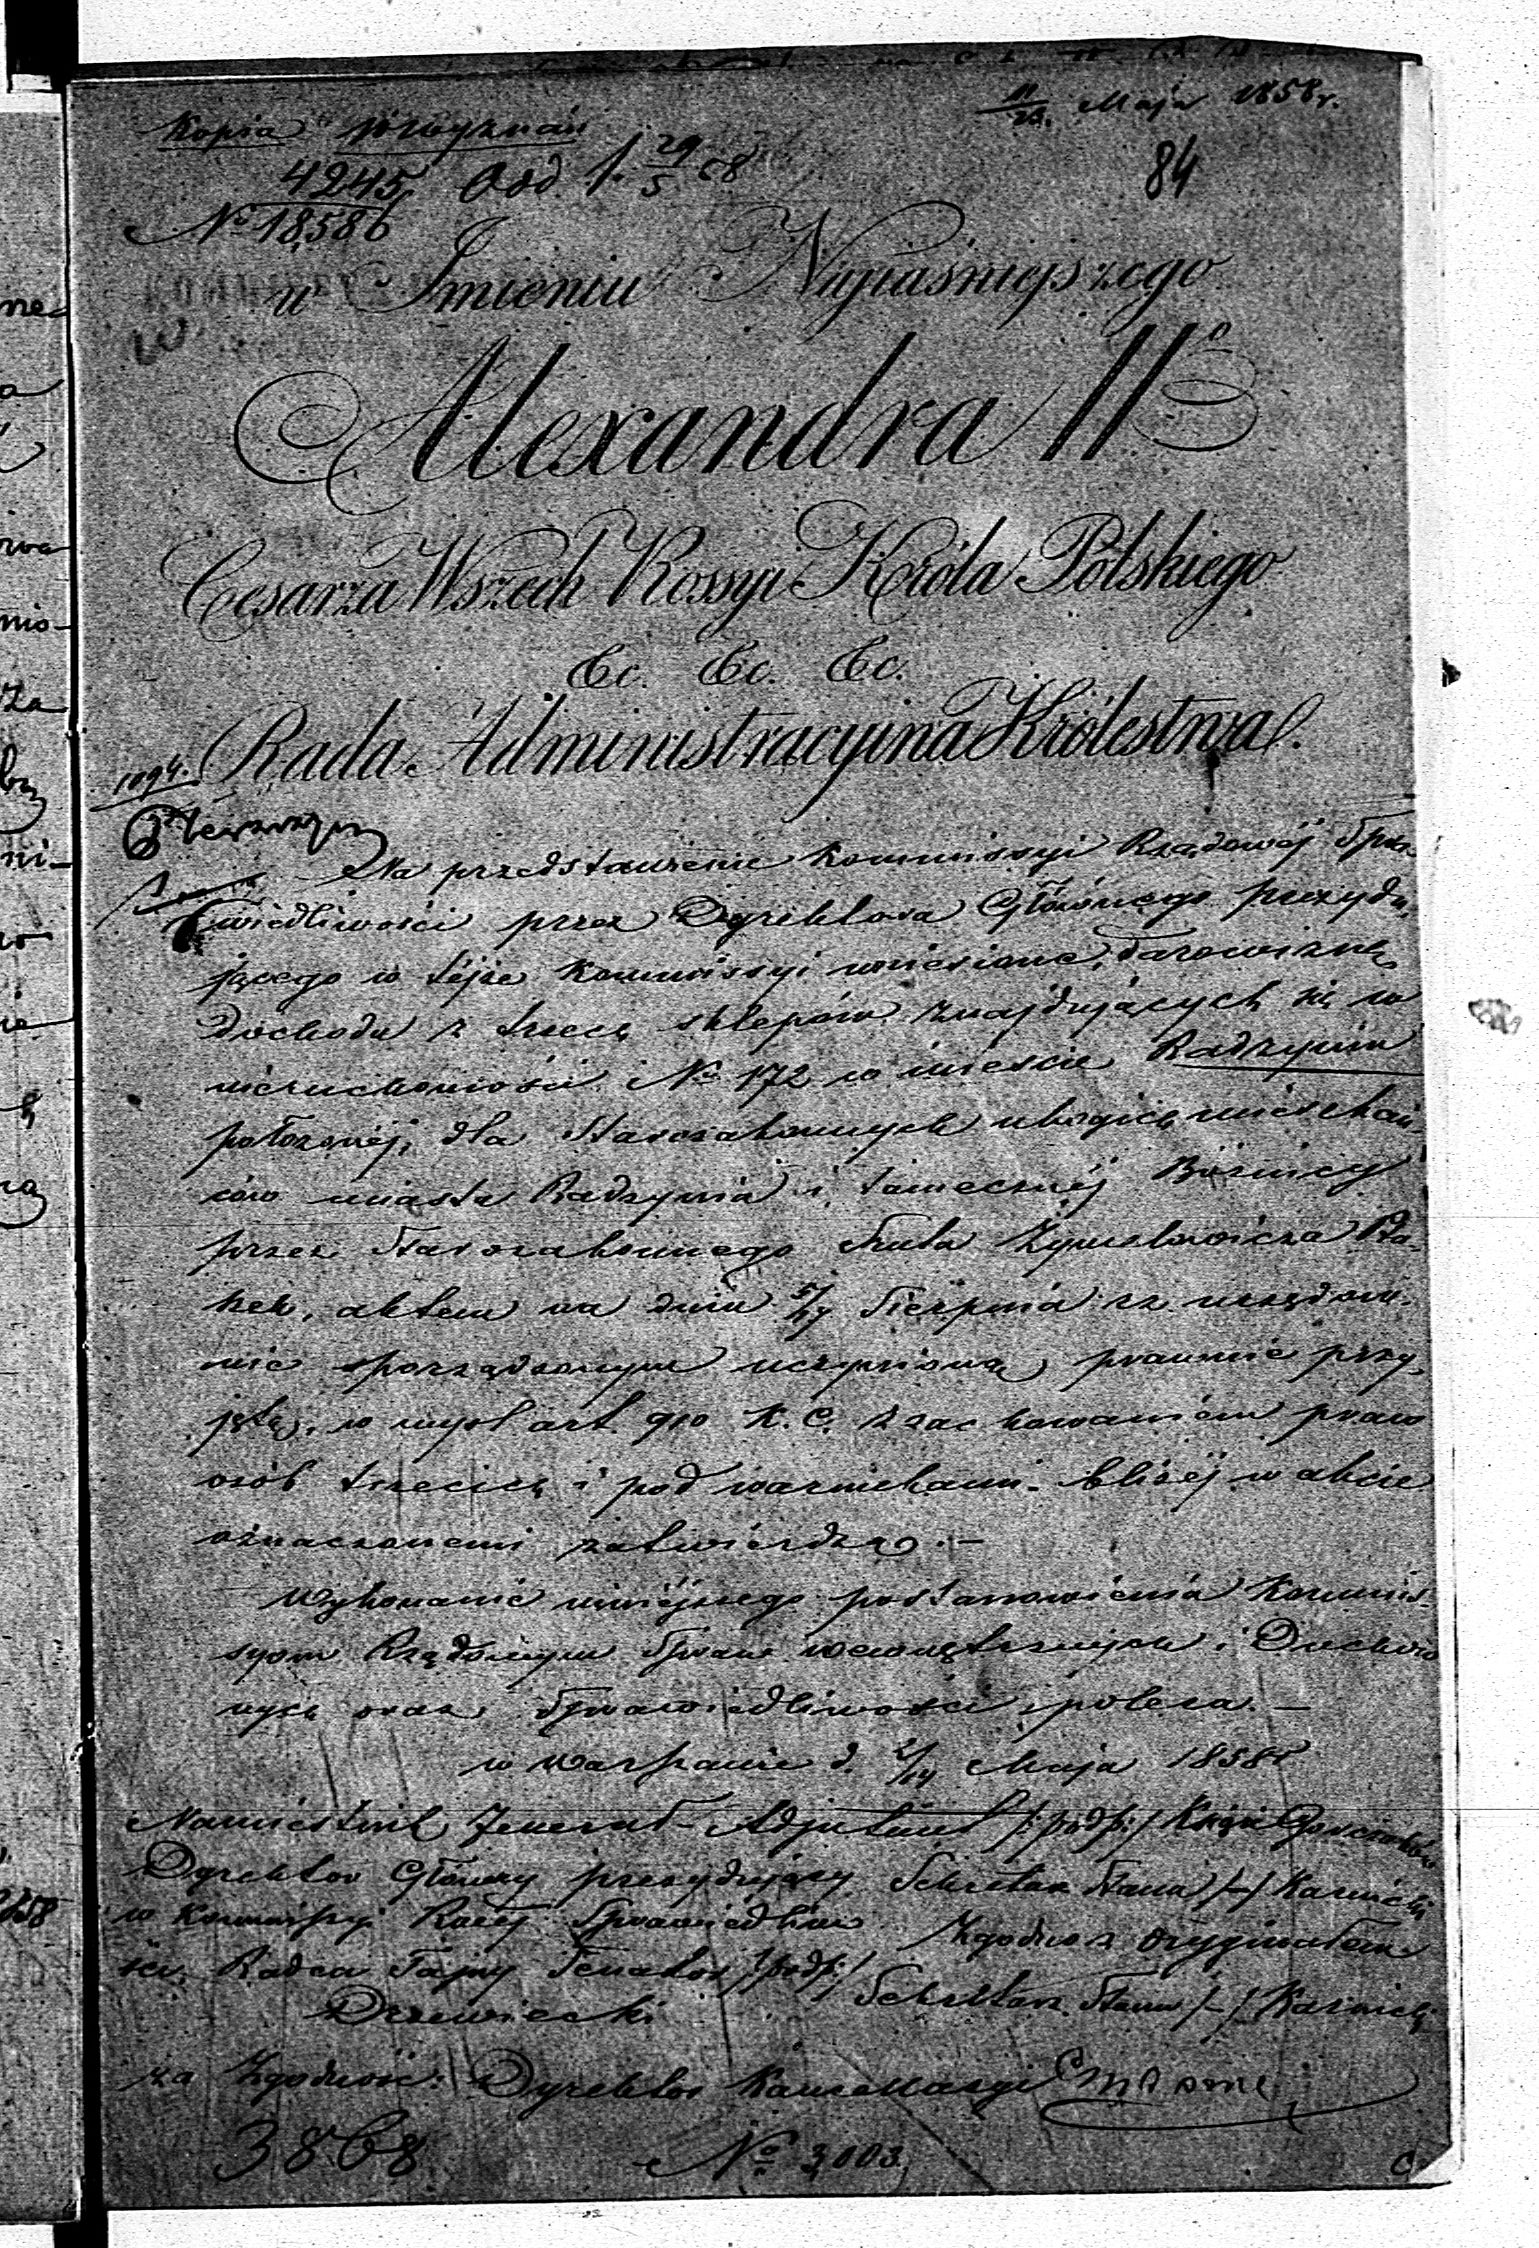 11/23. Maja 1858 r.
Kopia
84
4245. Odd. 1. 29/5 58
No 18,586
w Imieniu Najjaśniejszego
Alexandra IIo
Cesarza Wszech Rossyi Króla Polskiego
Ec. Ec. Ec.
Rada Administracyina Królestwa.
1094.
Na przedstawienie Kommissyi Rządowéj Spra-
wiedliwości przez Dyrektora Głównego prezydu-
jącego w téjże Kommissyi wniesione, darowiznę
dochodu z trzech sklepów znajdujących się w
nieruchomości No 172 w mieście Radzyniu
położonéj, dla Starozakonnych ubogich mieszkań-
ców miasta Radzynia i tamecznéj Bóżnicy
przez Starozakonnego Szula Zymelowicza
aktem na dniu 5/17 Sierpnia rz urzędow-
nie sporządzonym uczynioną, prawnie przy-
jętą, w myśl art. 910 K. C. z zachowaniem praw
osób trzecich i pod warunkami bliżéj w akcie
oznaczonemi zatwierdza.-
Wykonanie niniéjszego postanowienia Kommis-
syom Rządowym Spraw Wewnętrznych i Duchow-
nych oraz Sprawiedliwości poleca.-
w Warszawie d. 2/14 Maja 1858 r
Namiestnik Jenerał-Adjutant /:podp:/ Książe Gorczakow
Dyrektor Główny prezydujący Sekretarz Stanu /-/ Karnicki
w Kommissyi Rowéj Sprawiedliwo Zgodno z Oryginałem
ści, Radca Tajny Senator /:podp:/ Sekretarz Stanu /-/ Karnicki
Drzewiecki
za Zgodność: Dyrektor Kancellaryi
3868 No 3,003.